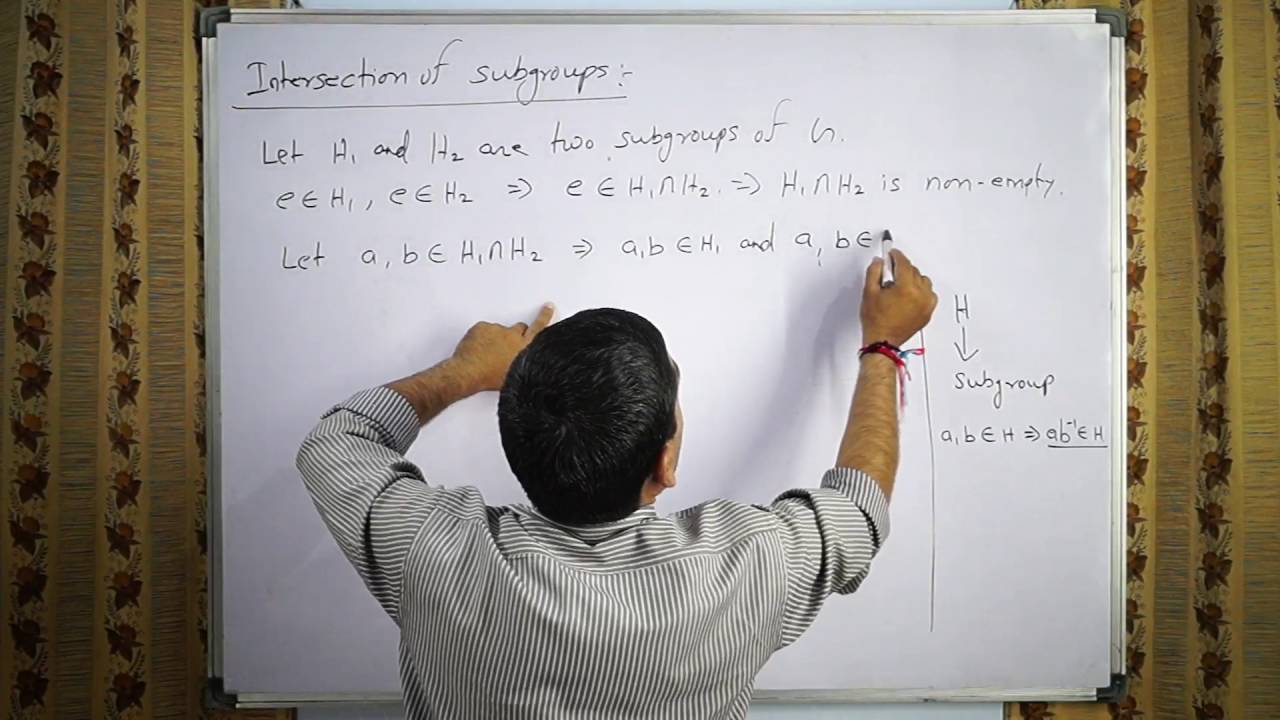 Intersection of subgroups:-
Let H₁ and H₂ are two subgroups of G.
e ∈ H₁, e ∈ H₂ ⇒ e ∈ H₁∩H₂. ⇒ H₁∩H₂ is non-empty.
Let a, b ∈ H₁∩H₂ ⇒ a, b ∈ H₁ and a, b ∈
H
↓
Subgroup
a, b ∈ H ⇒ ab⁻¹ ∈ H